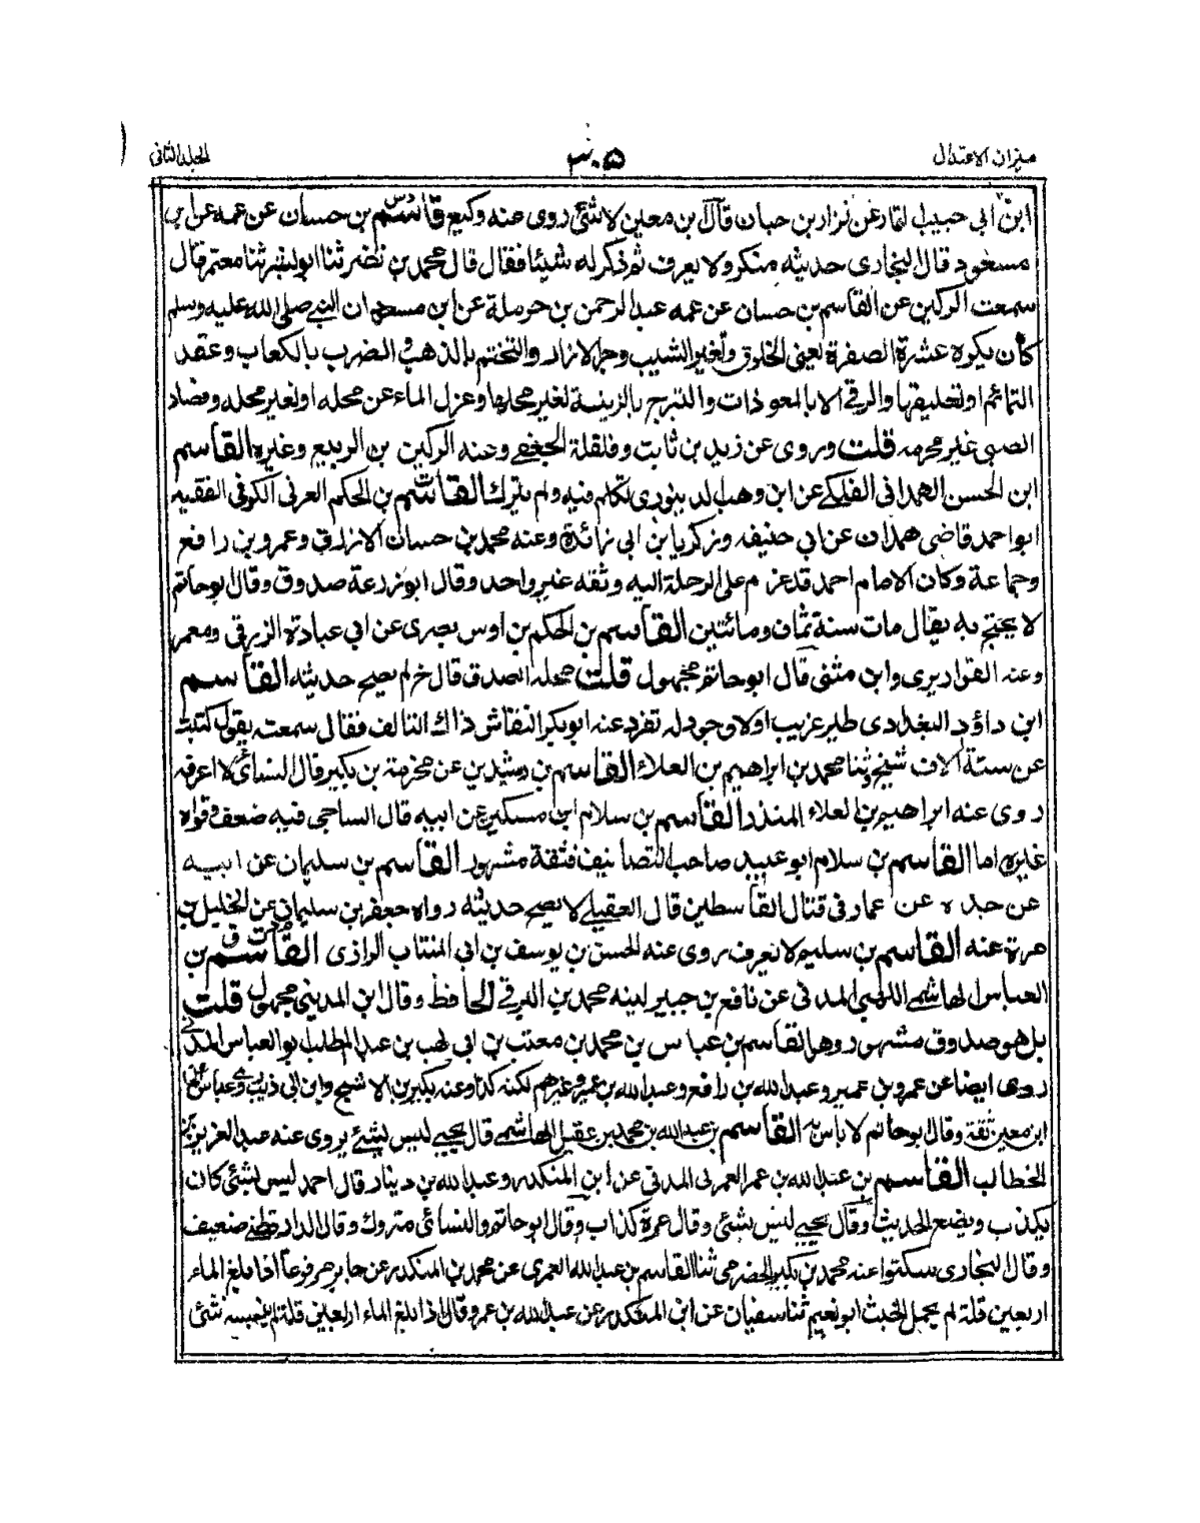 ميزان الاعتدال
المجلد الثاني
ابن ابي حبيب التمار عن نزار بن حبان قال ابن معين لا شئ روى عنه وكيع قاسم بن حسان عن عمه عن ابن
مسعود قال البخاري حديثه منكر ولا يعرف ثم ذكر له شيئا فقال قال محمد بن نضر ثنا ابو النضر ثنا معتمر قال
سمعت الركين عن القاسم بن حسان عن عمه عبد الرحمن بن حرملة عن ابن مسعود ان النبي صلى الله عليه وسلم
كان يكره عشرة الصفرة يعني الخلوق وتغير الشيب وجر الازار والتختم بالذهب والضرب بالكعاب وعقد
التمائم او تعليقها والرقى الا بالمعوذات والتبرج بالزينة لغير محلها وعزل الماء عن محله او لغير محله وفساد
الصبي غير محرمه قلت وروى عن زيد بن ثابت وفلفلة الجعفي وعنه الركين بن الربيع وغيره القاسم
ابن الحسن الهمداني الفلكي عن ابن وهب الدينوري تكلم فيه ولم يترك القاسم بن الحكم العرني الكوفي الفقيه
ابو احمد قاضي همدان عن ابي حنيفه وزكريا بن ابي زائدة وعنه محمد بن حسان الازرق وعمرو بن رافع
وجماعة وكان الامام احمد قد عزم على الرحلة اليه وثقه غير واحد وقال ابو زرعة صدوق وقال ابو حاتم
لا يحتج به يقال مات سنة ثمان ومائتين القاسم بن الحكم بن اوس بصري عن ابي عبادة الزرقي ومعمر
وعنه القواريري وابن مثنى قال ابو حاتم مجهول قلت محله الصدق قال خ لم يصح حديثه القاسم
ابن داؤد البغدادي طير غريب او لا وجود له تفرد عنه ابو بكر النقاش ذاك التالف فقال سمعته يقول كتبت
عن ستة آلاف شيخ ثنا محمد بن ابراهيم بن العلاء القاسم بن رشدين عن مخرمة بن بكير قال النسائي لا اعرفه
روى عنه ابراهيم بن العلاء المنذر القاسم بن سلام ابن مسكين عن ابيه قال الساجي فيه ضعف وقواه
غيره اما القاسم بن سلام ابو عبيد صاحب التصانيف فثقة مشهور القاسم بن سليمان عن ابيه
عن جده ه عن عمار في قتال القاسطين قال العقيلي لا يصح حديثه رواه جعفر بن سليمان عن الخليل بن
مرة عنه القاسم بن سليم لا يعرف روى عنه الحسن بن يوسف بن ابي المنتاب الرازي القاسم بن
العباس الهاشمي اللهبي المدني عن نافع بن جبير لينه محمد بن البرقي الحافظ وقال ابن المديني مجهول قلت
بل هو صدوق مشهور وهو القاسم بن عباس بن محمد بن معتب بن ابي لهب بن عبد المطلب ابو العباس المدني
روى ايضا عن عمرو بن عمير وعبد الله بن رافع وعبد الله بن عمير وغيرهم لكنه وعنه بكير بن الاشج وابن ابي ذيب
ابن معين ثقة وقال ابو حاتم لا باس به القاسم بن عبد الله بن محمد بن عقيل الهاشمي قال يحيى ليس بشئ يروى عنه عبد العزيز بن
الخطاب القاسم بن عبد الله بن عمر العمري المدني عن ابن المنكدر وعبد الله بن دينار قال احمد ليس بشئ كان
يكذب ويضع الحديث وقال يحيى ليس بشئ وقال مرة كذاب وقال ابو حاتم والنسائي متروك وقال الدارقطني ضعيف
وقال البخاري سكتوا عنه محمد بن بكير الحضرمي ثنا القاسم بن عبد الله العمري عن محمد بن المنكدر عن جابر مرفوعا اذا بلغ الماء
اربعين قلة لم يحمل الخبث ابو نعيم ثنا سفيان عن ابن المنكدر عن عبد الله بن عمرو قال اذا بلغ الماء اربعين قلة لم ينجسه شئ